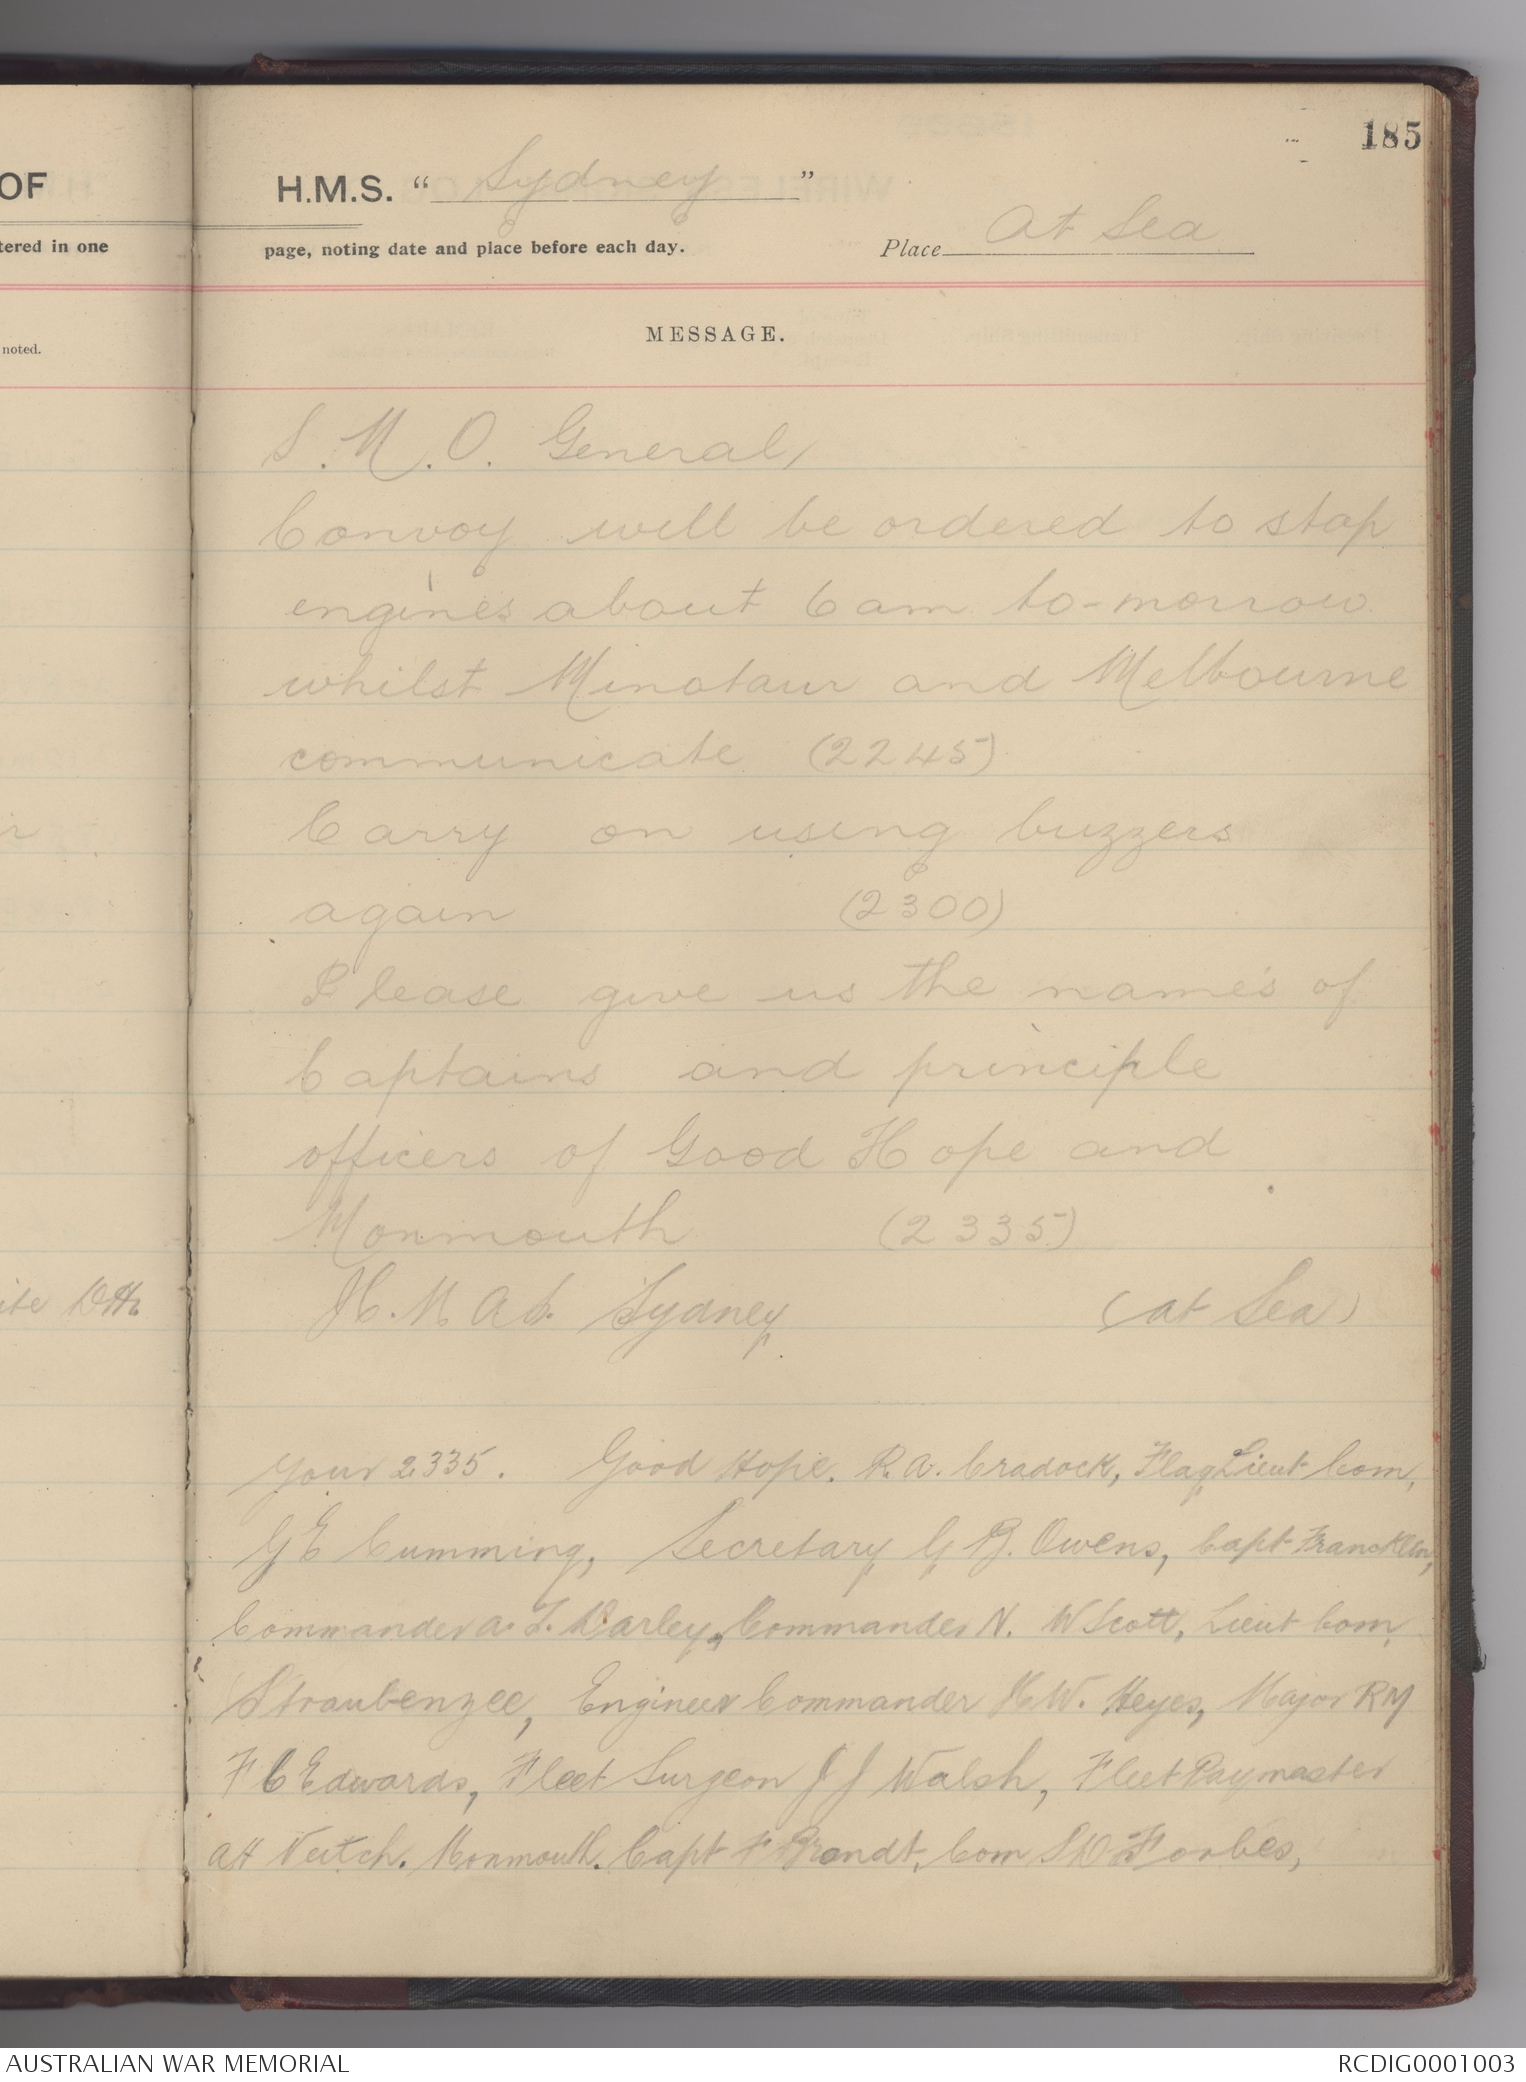 185
OF H.M.S. " Sydney "
tered in one page, noting date and place before each day. Place At Sea
noted. MESSAGE.
S.M.O. General,
Convoy will be ordered to stop
engines about 6 am to-morrow
whilst Minotaur and Melbourne
communicate (2245)
Carry on using buzzers
again (2300)
Please give us the names of
Captains and principle
officers of Good Hope and
Monmouth (2335)
H.M.A.S. Sydney (at Sea)
Your 2335. Good Hope. R.A. Cradock, Flag Lieut Com,
G E Cumming, Secretary G B. Owens, Capt Francklin,
Commander A. T. Darley, Commander N. W Scott, Lieut Com,
Straubenzee, Engineer Commander H W. Heyes, Major RM
F C Edwards, Fleet Surgeon J J Walsh, Fleet Paymaster
AH Veitch. Monmouth. Capt F Brandt, Com S D Forbes,
AUSTRALIAN WAR MEMORIAL
RCDIG0001003